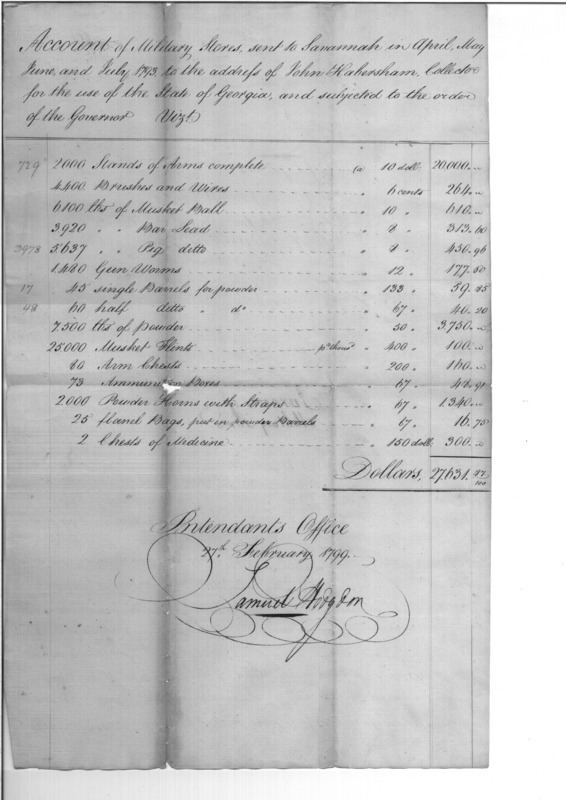 Account of Military Stores, sent to Savannah in April, May
June, and July 1793, to the address of John Habersham, Collector
for the use of the State of Georgia, and subjected to the order
of the Governor Vizt
729 2000 Stands of Arms complete @ 10 doll. 20,000.
4.400 Brushes and Wires " 6 cents 264.
6100 lbs of Musket Ball " 10 " 610.
3920 " " Bar Lead " 8 " 313. 60
3978 5.637 " " Pig ditto " 8 " 450. 96
1.480 Gun Worms " 12 " 177. 60
17 45 single Barrels for powder " 133 " 59. 85
48 60 half ditto " do " 67 " 40. 20
7.500 lbs of Powder " 50 " 3.750.
25000 Musket Flints pr thousd " 400 " 100.
80 Arm Chests " 200 " 160.
73 Ammunition Boxes " 67 " 48. 91
2.000 Powder Horns with Straps " 67 " 1.340.
25 flanel Bags, put in powder Barrels " 67 " 16. 75
2 Chests of Medicine " 150 doll. 300.
Dollars, 27631. 87/100
Intendants Office
27th February 1799.
Samuel Hodgdon